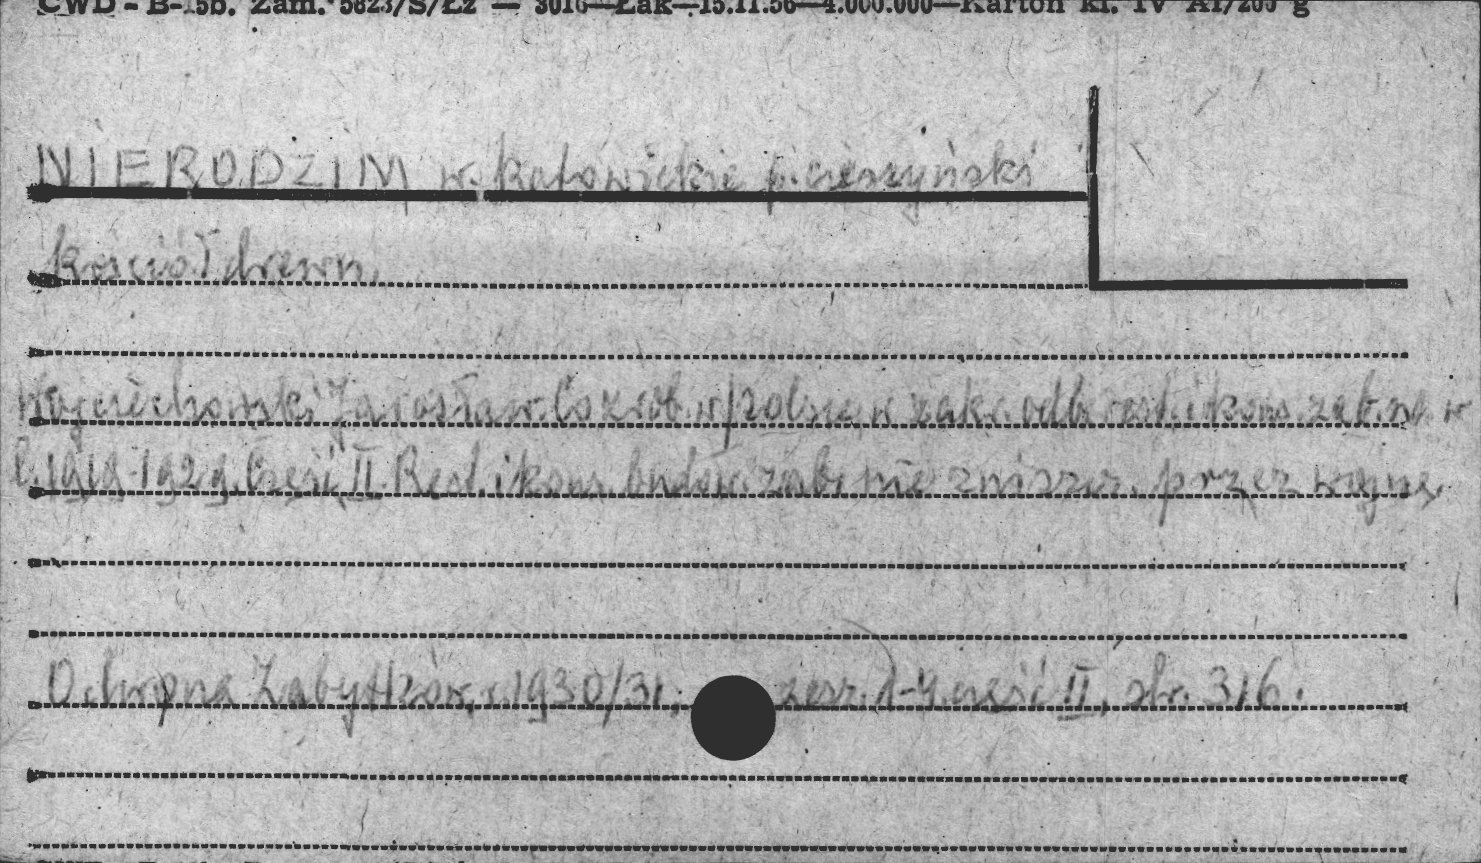 CWD - B-15b. Zam. 5823/S/Łz — 3016—Łak—15.11.56—4.000.000—Karton kl. IV A1/200 g
NIERODZIM w. katowickie p. cieszyński
kościół drewn.
Wojciechowski Jarosław. Co zrob. w polsce w zakr. odb. rest. i kons. zab. w
l. 1919-1929. Część II. Rest. i kons. budow. zab. nie zniszcz. przez wojnę.
Ochrona Zabytków, r. 1930/31, zesz. 1-4. część II, str. 316.